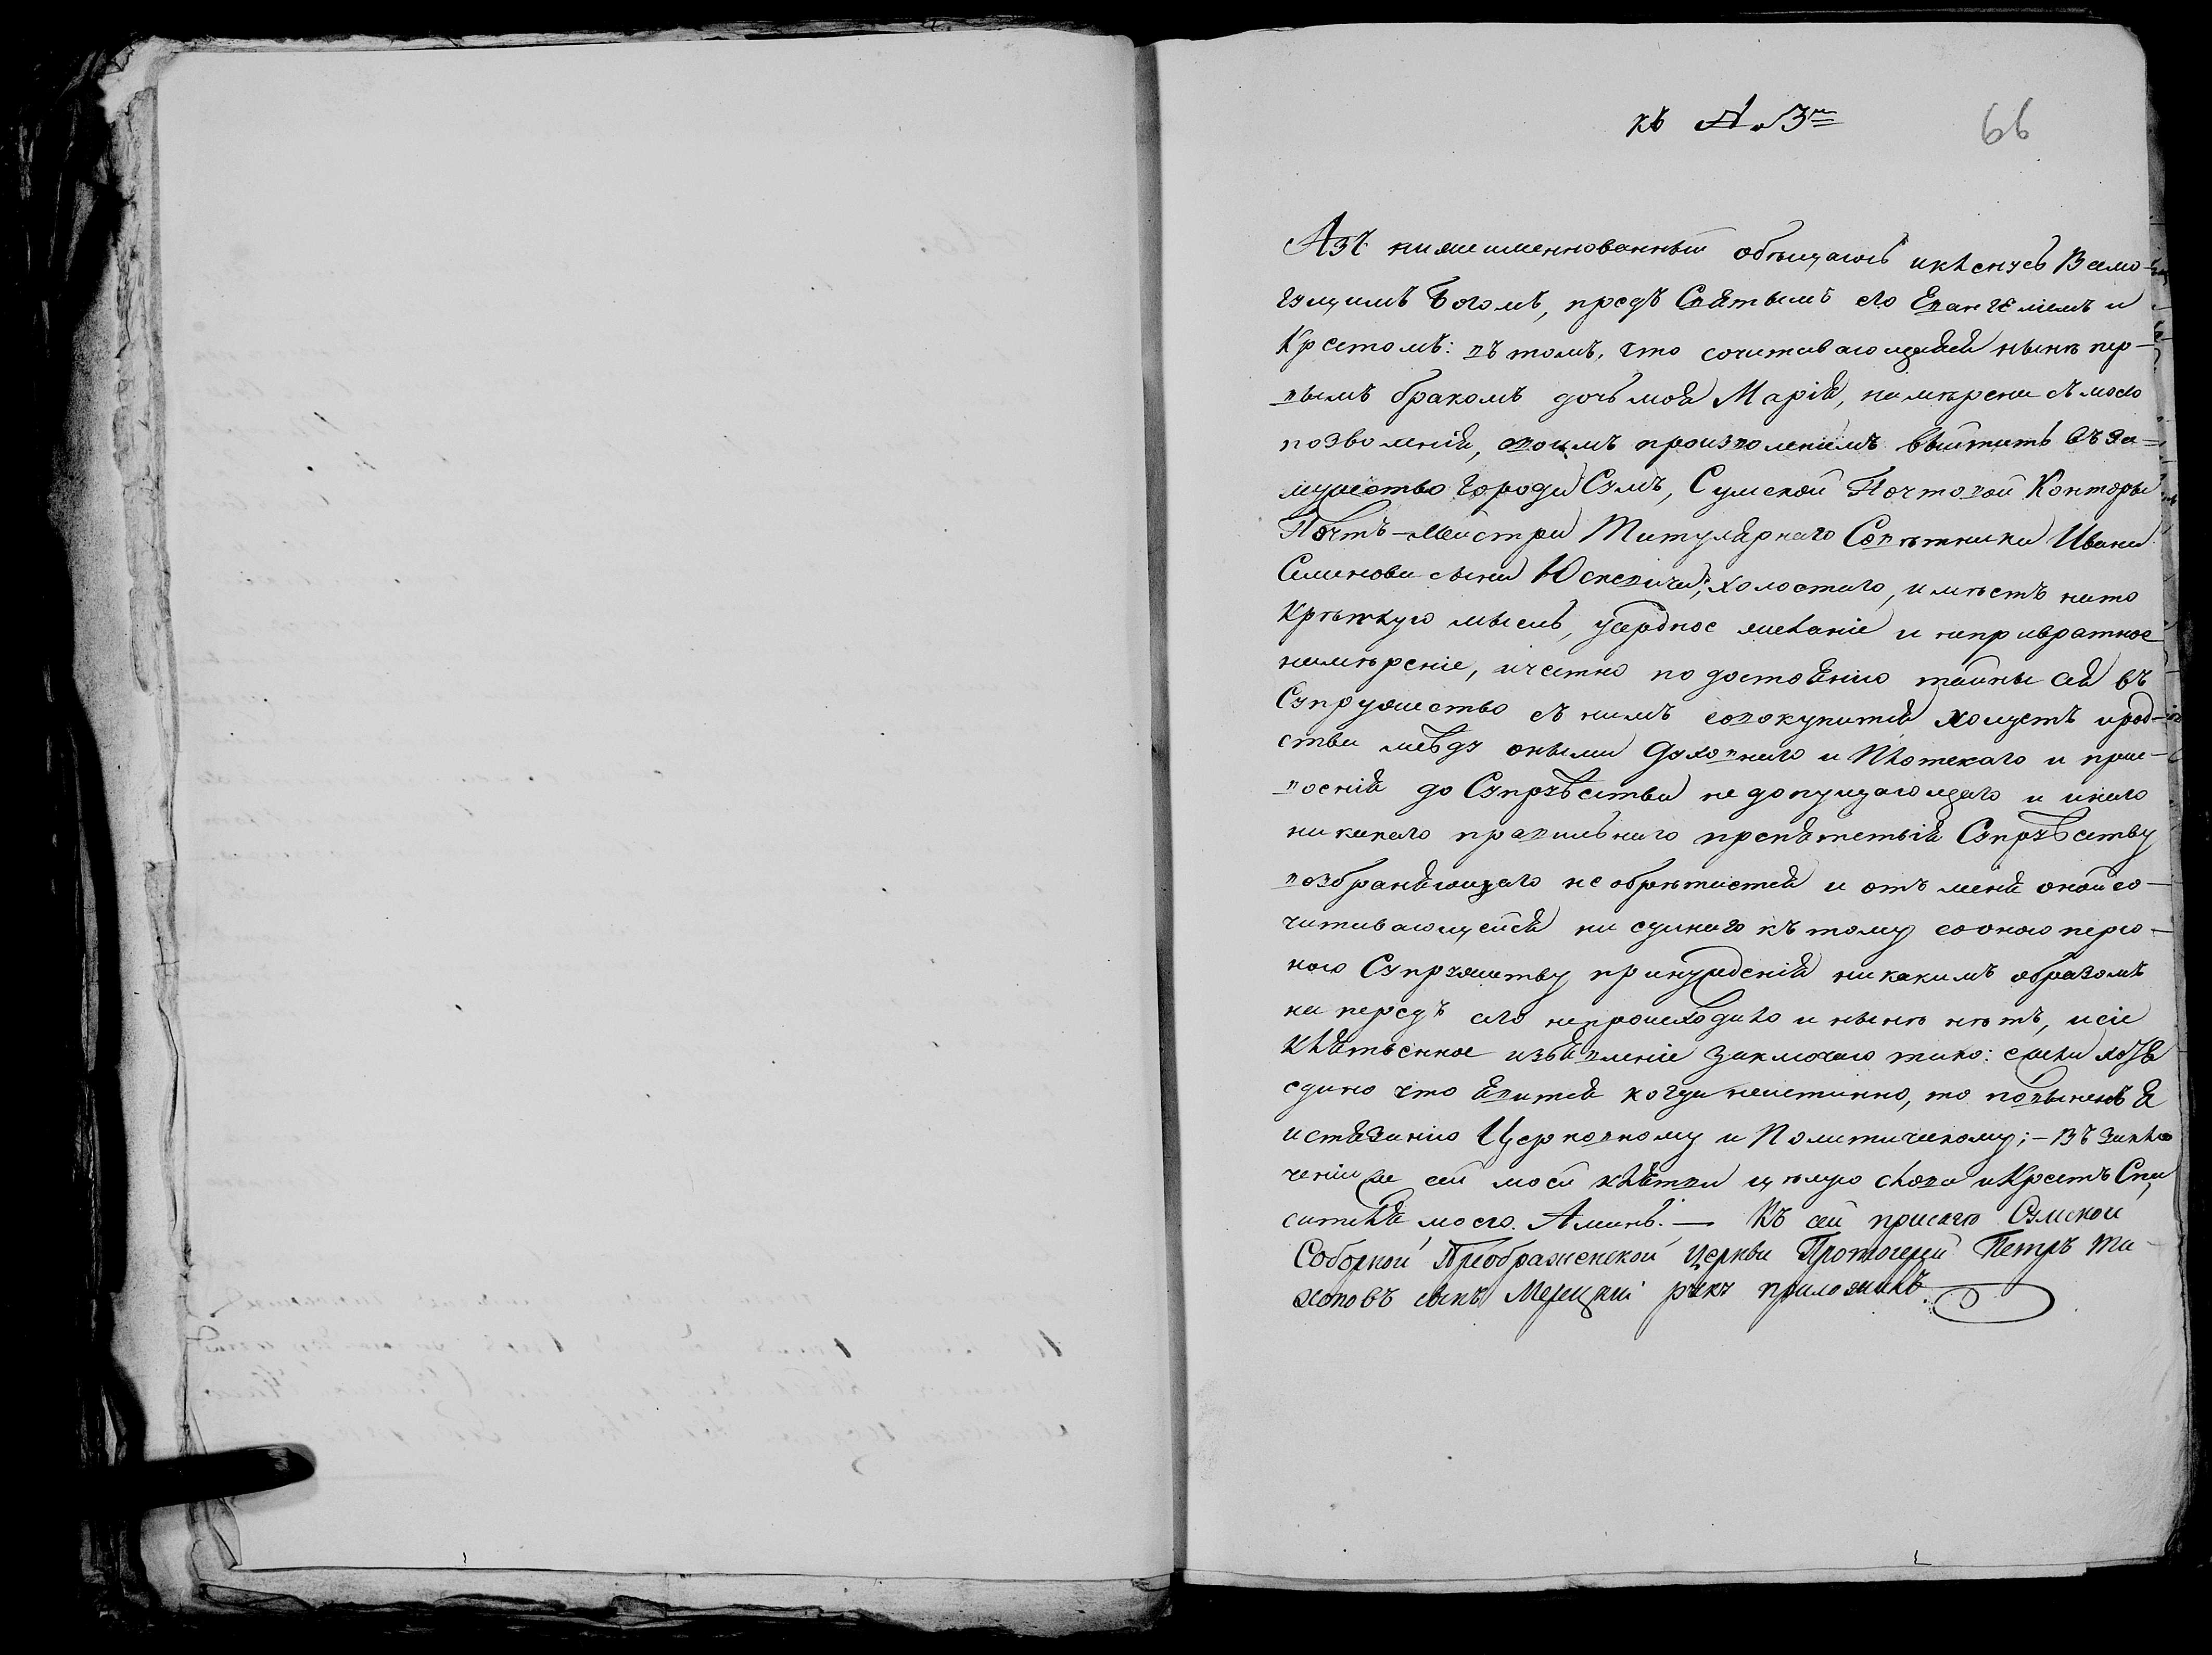 къ № 3му
66
Азъ нижеименнованный обещаюсь и кленусь Всемо-
гущимъ Богомъ, предъ Святымъ его Евангелиемъ и
Крестомъ: въ томъ, что сочитавающаяся ныне пер-
вымъ бракомъ дочь моя Мария, намерена съ моего
позволения, своимъ произволениемъ выйтить въ за-
мужество города Сумъ, Сумской Почтовой Конторы
Почтъ-Мейстра Титулярнаго Советника Ивана
Семенова сына Юскевича, холостаго, имеетъ на то
Крепкую мысль, усердное желание и непривратное
намерение, и честно по достоянию тайны сея въ
Супружество съ нимъ совокупитися хощетъ и род-
ства между оными духовнаго и Плотскаго и прис-
воения до Супружства не допущающаго и инаго
никакаго правильнаго препятствия Супружству
возбраняющаго не обретается и отъ меня оной со-
читавающейся ни единаго къ тому со оною персо-
ною Супружству принуждения никакимъ образомъ
на передъ сего не происходило и ныне нетъ, и сие
клятвенное изъявление заключаю тако: ежели хотя
едино что явится когда неистинно, то повиненъ я
истязанию Церковному и Политическому; – Въ заклю
чении же сей моей клятвы целую слова и Крестъ Спа
сителя моего. Аминь. — Къ сей присяге Сумской
Соборной Преображенской Церкви Протоиерей Петръ
сынъ руку приложилъ